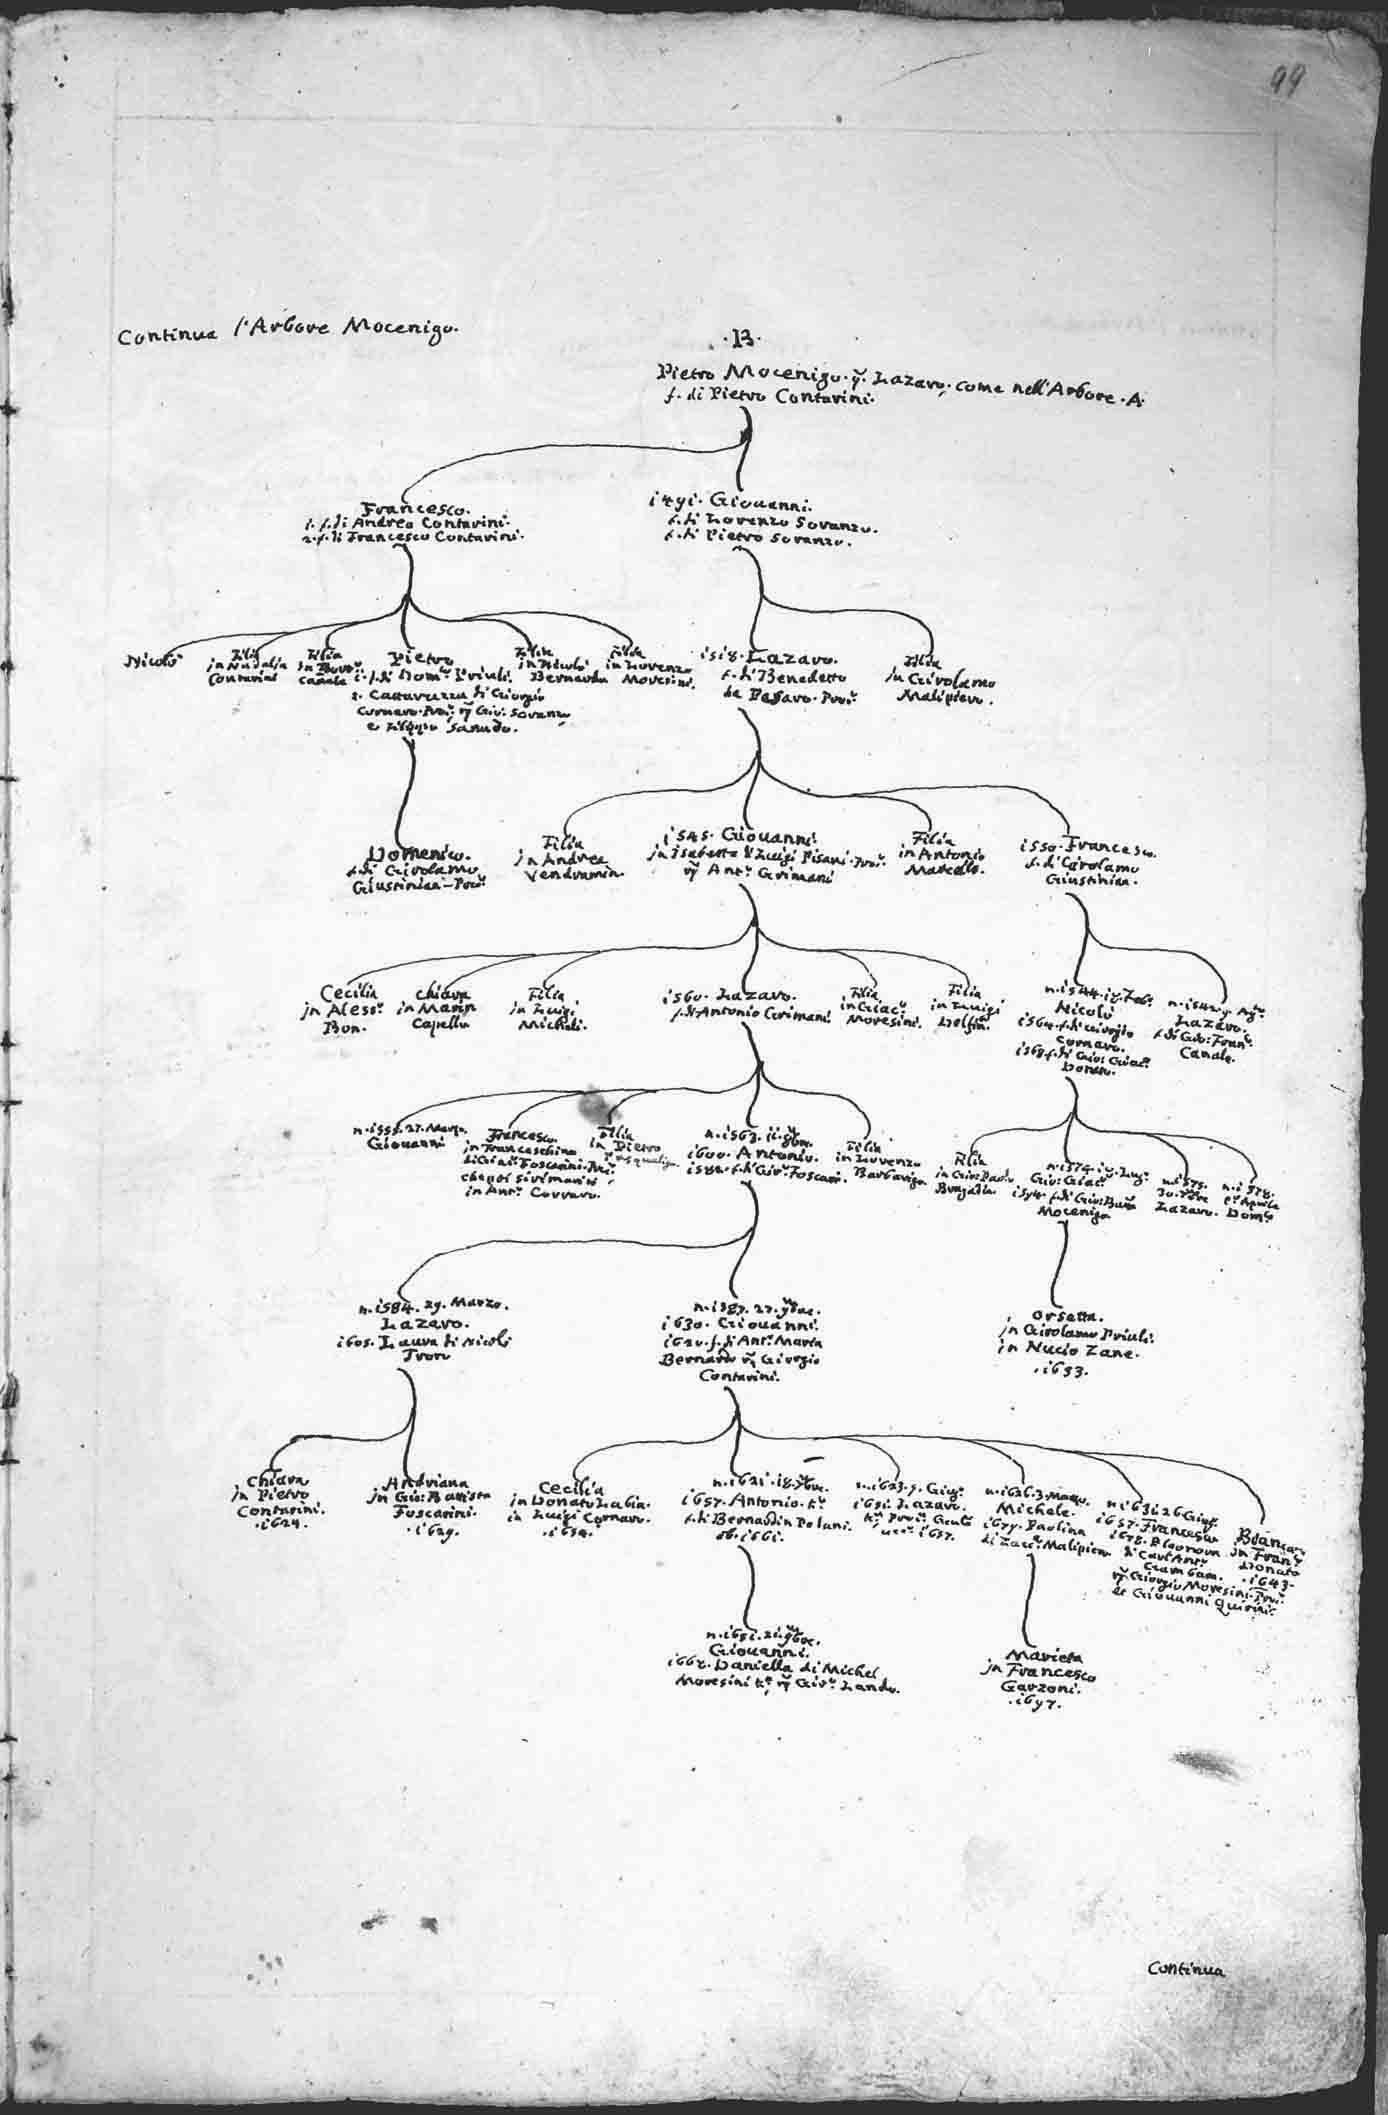 99
Continua l'Arbore Mocenigo.
.B.
Pietro Mocenigo. q. Lazaro, come nell'Arbore .A.
f. di Pietro Contarini.
Francesco.
1. f. di Andrea Contarini.
2. f. di Francesco Contarini.
i491. Giovanni.
f. di Lorenzo Soranzo.
f. di Pietro Soranzo.
Nicolò
Filia
in Nadalin
Contarini
Filia
Canale
Pietro
1. f. di Dom.co Priuli.
2. Cattaruzza di Giorgio
Cornaro Pro.r, q. Gio: Soranzo,
e Filippo Sanudo.
Filia
in Nicolò
Bernardo
Filia
in Lorenzo
Moresini.
i5i8. Lazaro.
f. di Benedetto
da Pesaro Pro.r
Filia
in Girolamo
Malipiero.
Domenico.
f. di Girolamo
Giustinian Pro.r
Filia
in Andrea
Vendramin.
i545. Giovanni.
in Isabetta di Luigi Pisani Pro.r
q. Ant.o Grimani
Filia
in Antonio
Marcello.
i550. Francesco.
f. di Girolamo
Giustinian.
Cecilia
in Aless.o
Bon.
Chiara
in Marin
Capello
Filia
in Luigi
Micheli.
i560. Lazaro.
f. di Antonio Grimani
Filia
in Giac.o
Moresini.
Filia
in Luigi
Dolfin.
Nicolò
i564. f. di Giorgio
Cornaro.
i568. f. di Gio: Giac.o
Donato.
Lazaro.
f. di Gio: Fran.co
Canale.
n. i555. 27. Marzo.
Giovanni
Francesco.
in Franceschina
Foscarini
in Ant.o Corraro.
Filia
in Pietro
Pasqualigo
n. i563.
i600. Antonio.
i582. f. di Gir.o Foscari.
Filia
in Lorenzo
Barbarigo
Filia
in Gio: Paolo
Bragadin
Gio: Giac.o
f. di Gio: Batt.a
Mocenigo
n. i575.
Lazaro.
n. i578.
Dom.co
n. i584. 29. Marzo.
Lazaro.
i605. Laura di Nicolò
Tron
n. i587. 27. 9bre.
i630. Giovanni.
i620. f. di Ant.o Maria
Bernardo q. Giorgio
Contarini.
Orsetta.
in Girolamo Priuli.
in Nucio Zane.
.i633.
Chiara
in Pietro
Contarini.
.i624.
Andriana
in Gio: Battista
Foscarini.
.i629.
Cecilia
in Donato Labia.
in Luigi Cornaro.
.i634.
n. i62i. i8. 9bre.
i657. Antonio K.r
f. di Bernardin Polani.
ob. i66i.
n. i623. 9. Giug.o
i65i. Lazaro.
i657.
n. i626. 3. Marzo.
Michele.
i677. Paolina
di Zacc.a Malipiero
n. i63i 26 Giug.o
i657. Francesco
i678. Eleonora
di Carl'Ant.o
Gambara.
q. Giorgio Moresini Pro.r
et Giovanni Quirini.
Bianca
in Fran.co
Donato
.i643.
n. i65i. 2i. 9bre.
Giovanni.
i662. Daniella di Michel
Moresini K.r, q. Gir.o Lando.
Marieta
in Francesco
Garzoni.
.i697.
Continua